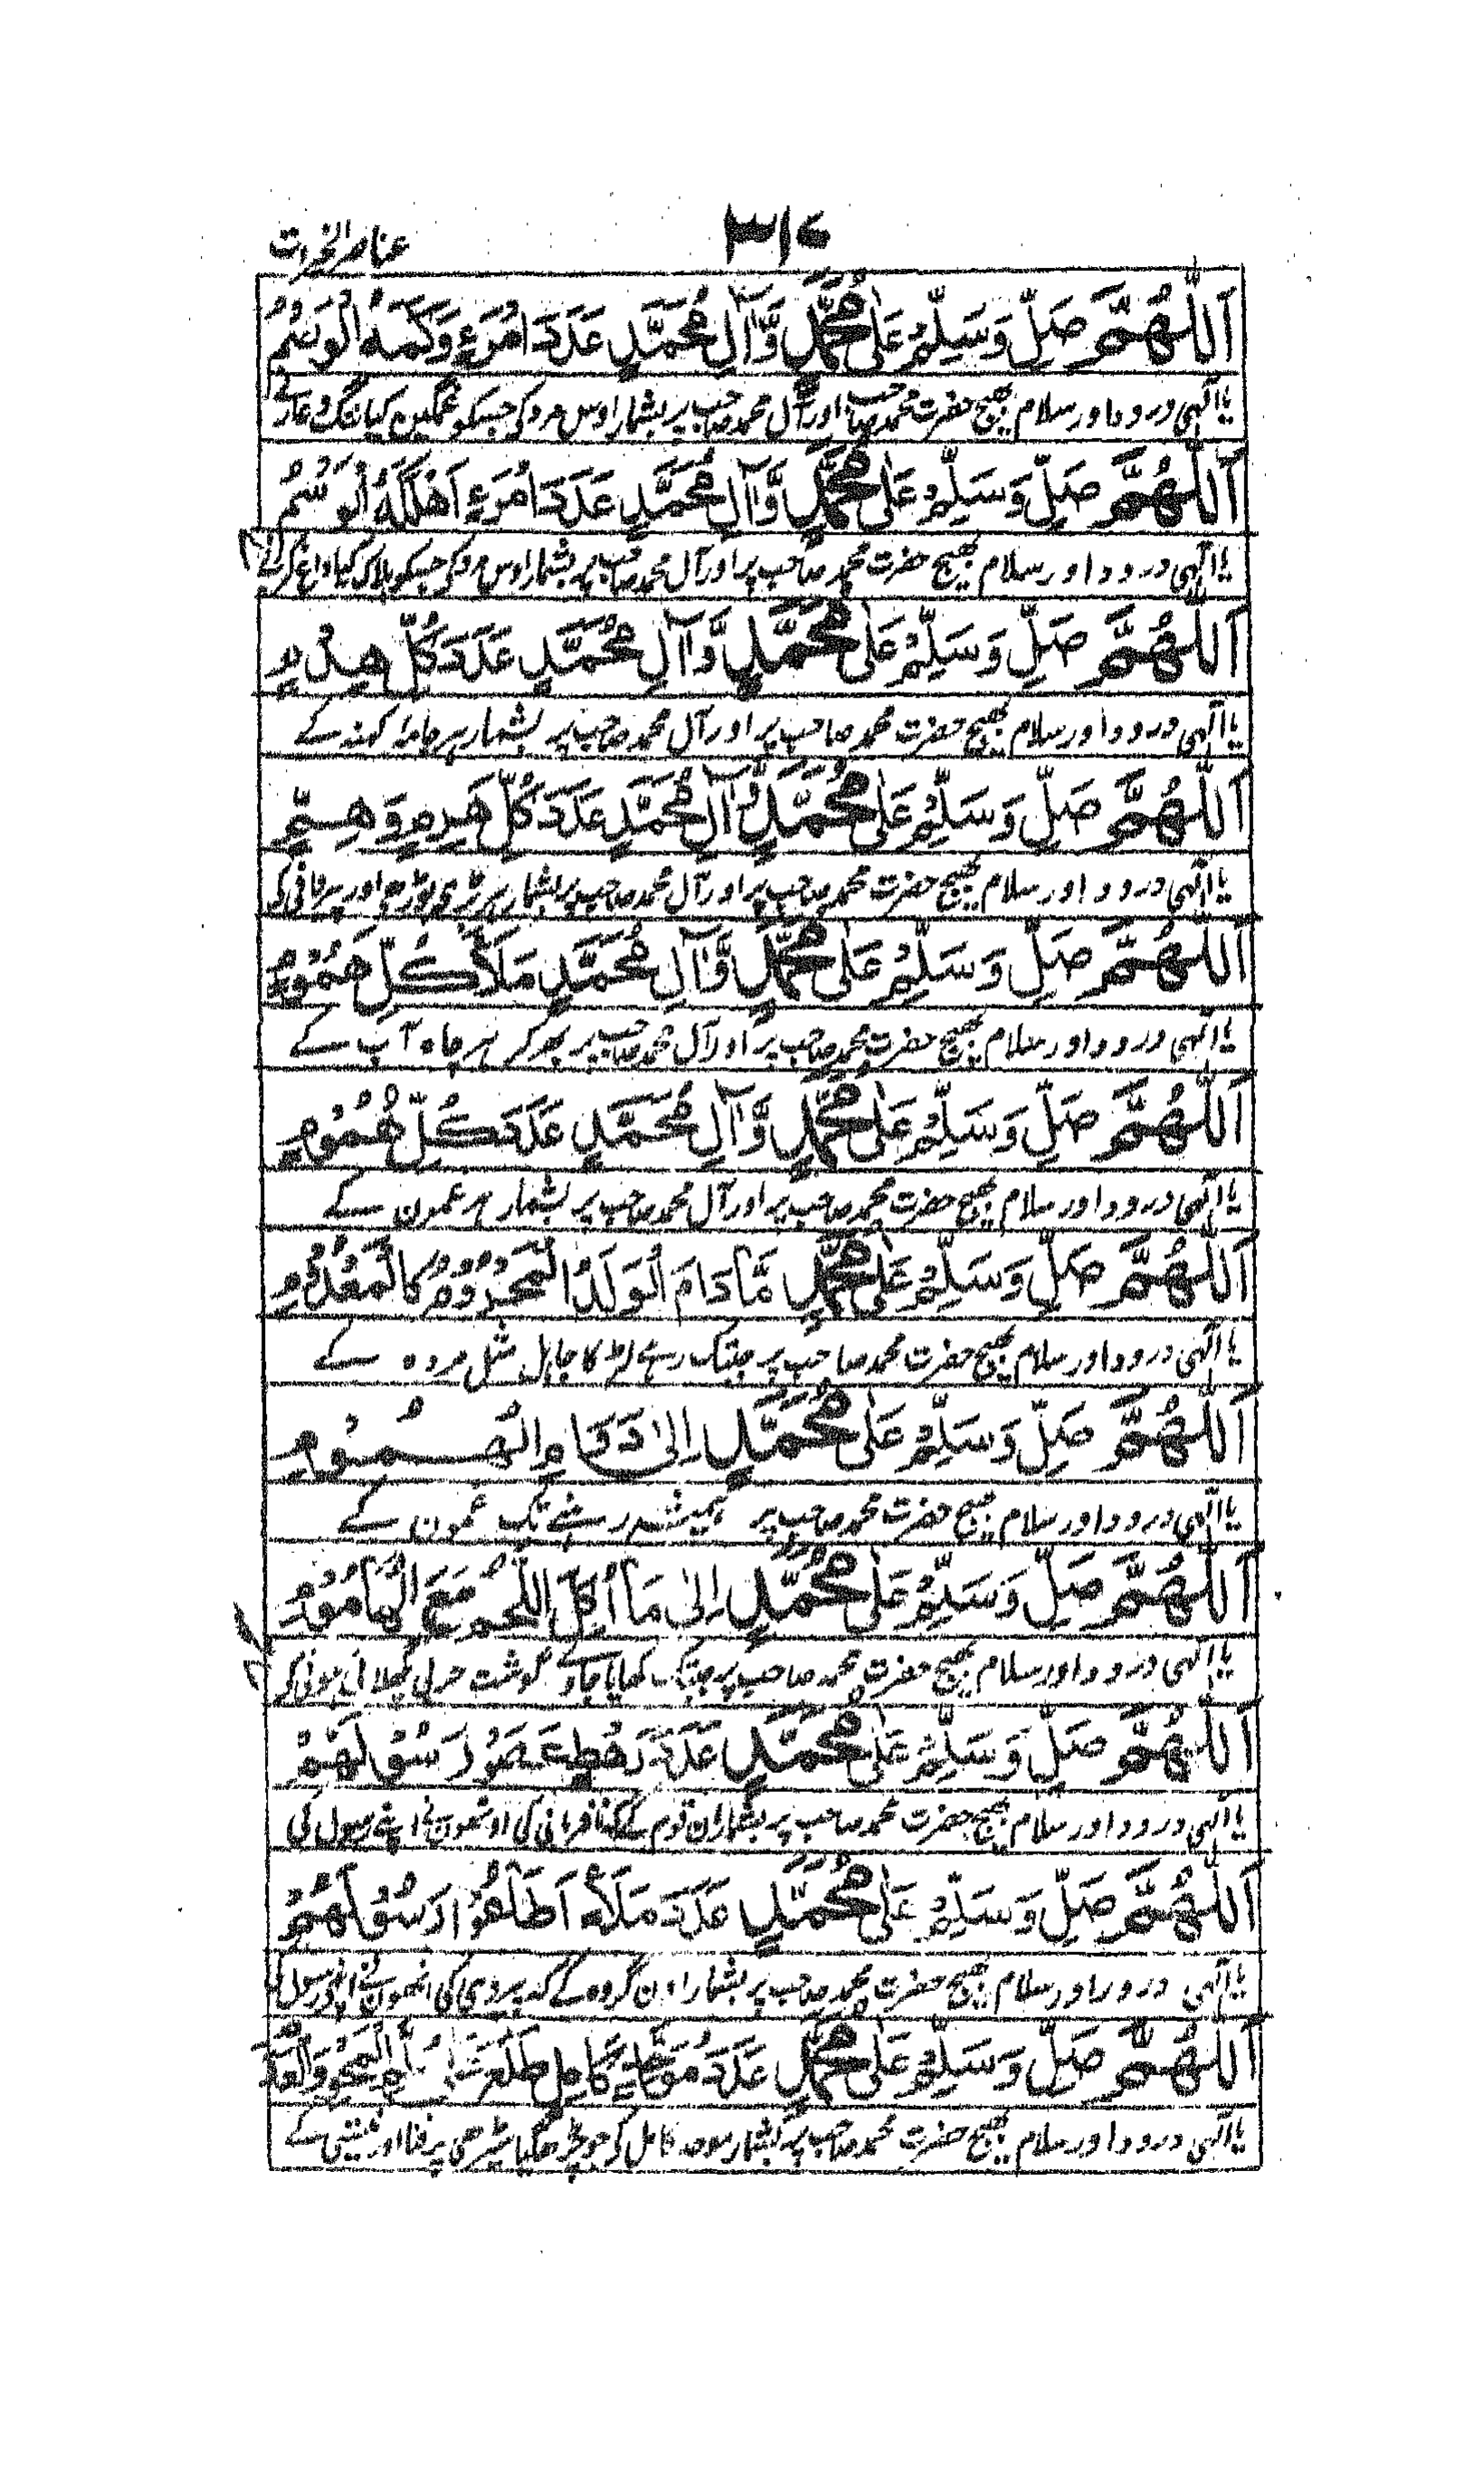 ۳۱۷
عناصر الخیرات
اَللّٰهُمَّ صَلِّ وَسَلِّمْ عَلٰى مُحَمَّدٍ وَّاٰلِ مُحَمَّدٍ عَدَدَ امْرَءٍ وَكَمَهُ الْوَسْمُ
یا الٰہی درود اور سلام بھیج حضرت محمد صاحب اور آل محمد صاحب پر بشمار اوس مرد کی جسکو غمگین کیا ننگ و عار کے
اَللّٰهُمَّ صَلِّ وَسَلِّمْ عَلٰى مُحَمَّدٍ وَّاٰلِ مُحَمَّدٍ عَدَدَ امْرَءٍ اَهْلَكَهُ الْوَسْمُ
یا الٰہی درود اور سلام بھیج حضرت محمد صاحب پر اور آل محمد صاحب پر بشمار اوس مرد کی جسکو ہلاک کیا داغ
اَللّٰهُمَّ صَلِّ وَسَلِّمْ عَلٰى مُحَمَّدٍ وَّاٰلِ مُحَمَّدٍ عَدَدَ كُلِّ هِدْمٍ
یا الٰہی درود اور سلام بھیج حضرت محمد صاحب پر اور آل محمد صاحب پر بشمار ہر جامہ کہنہ کے
اَللّٰهُمَّ صَلِّ وَسَلِّمْ عَلٰى مُحَمَّدٍ وَّاٰلِ مُحَمَّدٍ عَدَدَ كُلِّ هَرِمٍ وَهِمٍّ
یا الٰہی درود اور سلام بھیج حضرت محمد صاحب پر اور آل محمد صاحب پر بشمار ہر بڑی بوڑھے اور پیر فانی کی
اَللّٰهُمَّ صَلِّ وَسَلِّمْ عَلٰى مُحَمَّدٍ وَّاٰلِ مُحَمَّدٍ مَلَأَ كُلِّ هَمُوْمٍ
یا الٰہی درود اور سلام بھیج حضرت محمد صاحب پر اور آل محمد صاحب پر بھر کر ہر چاہ آب کے
اَللّٰهُمَّ صَلِّ وَسَلِّمْ عَلٰى مُحَمَّدٍ وَّاٰلِ مُحَمَّدٍ عَدَدَ كُلِّ هُمُوْمٍ
یا الٰہی درود اور سلام بھیج حضرت محمد صاحب پر اور آل محمد صاحب پر بشمار ہر غمون کے
اَللّٰهُمَّ صَلِّ وَسَلِّمْ عَلٰى مُحَمَّدٍ مَّا دَامَ الْوَلَدُ الْمَحْرُوْمُ كَالْمَعْدُوْمِ
یا الٰہی درود اور سلام بھیج حضرت محمد صاحب پر جبتک رہے لڑکا جاہل مثل مردہ کے
اَللّٰهُمَّ صَلِّ وَسَلِّمْ عَلٰى مُحَمَّدٍ اِلٰى دَوَامِ الْهُمُوْمِ
یا الٰہی درود اور سلام بھیج حضرت محمد صاحب پر ہمیشہ رہنے تک غمون کے
اَللّٰهُمَّ صَلِّ وَسَلِّمْ عَلٰى مُحَمَّدٍ اِلٰى مَا اُكِلَ اللَّحْمُ مَعَ الْهَامُوْمِ
یا الٰہی درود اور سلام بھیج حضرت محمد صاحب پر جبتک کھایا جاوے گوشت چربی پگھلائی ہوئی کی
اَللّٰهُمَّ صَلِّ وَسَلِّمْ عَلٰى مُحَمَّدٍ عَدَدَ رَهْطٍ عَصَوْ رَسُوْلَهُمْ
یا الٰہی درود اور سلام بھیج حضرت محمد صاحب پر بشمار ان قوم کے کہ نافرمانی کی اونھون نے اپنے رسول کی
اَللّٰهُمَّ صَلِّ وَسَلِّمْ عَلٰى مُحَمَّدٍ عَدَدَ مَلَأٍ اَطَاعُوْا رَسُوْلَهُمْ
یا الٰہی درود اور سلام بھیج حضرت محمد صاحب پر بشمار اون گروہ کے کہ پیروی کی انھون نے اپنی رسول کی
اَللّٰهُمَّ صَلِّ وَسَلِّمْ عَلٰى مُحَمَّدٍ عَدَدَ مُوَحِّدٍ كَامِلٍ طَلَعَ الْمَحْوِ وَالْعَدَ
یا الٰہی درود اور سلام بھیج حضرت محمد صاحب پر بشمار موحد کامل کی جو چڑھ گیا سیڑھی پر فنا اور نیستی کے